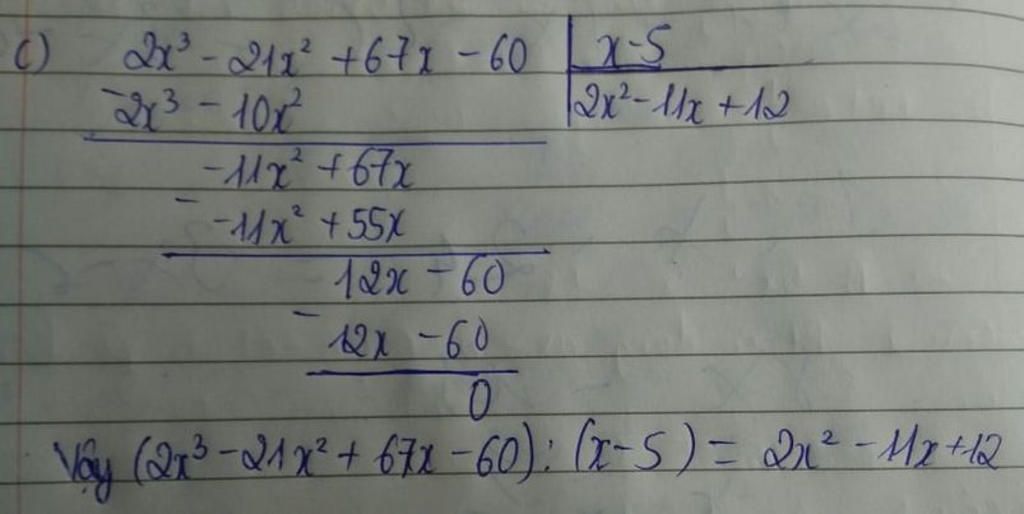 c) 2x³ - 21x² + 67x - 60 | x-5
- 2x³ - 10x² | 2x² - 11x + 12
-11x² + 67x
- -11x² + 55x
12x - 60
- 12x - 60
0
Vậy (2x³ - 21x² + 67x - 60) : (x - 5) = 2x² - 11x + 12